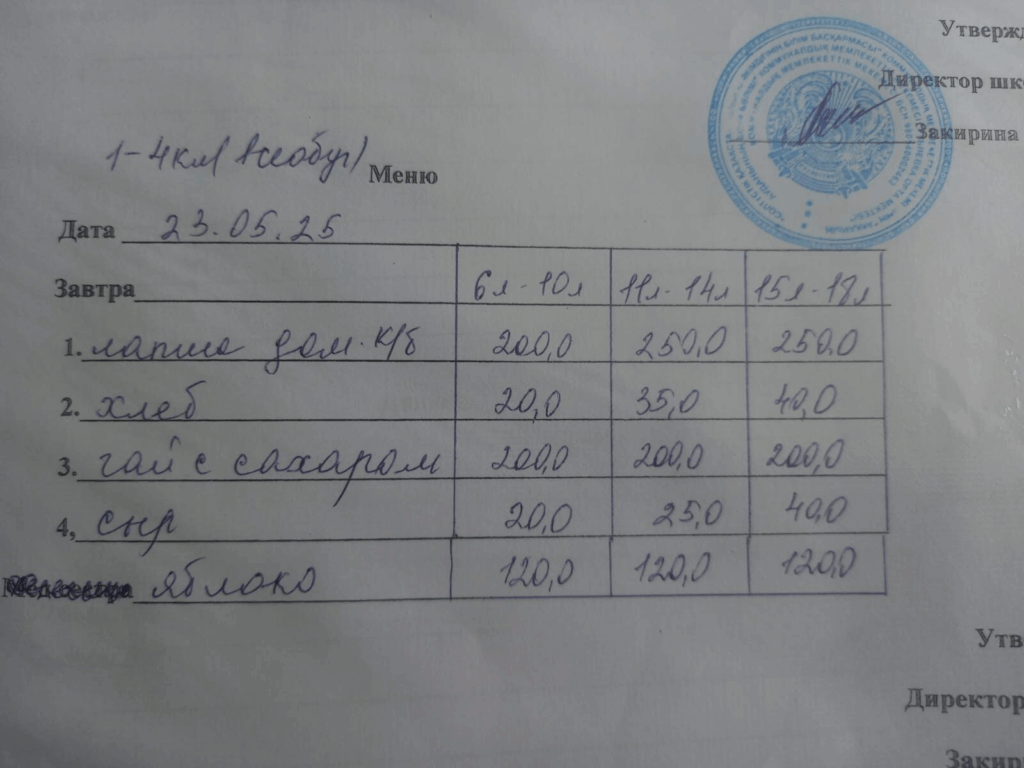 Утвержд
Директор шко
Закирина
1-4 кл (всеобуч) Меню
Дата 23.05.25
Завтра 6л-10л 11л-14л 15л-18л
1. лапша дом. к/б 200,0 250,0 250,0
2. хлеб 20,0 35,0 40,0
3. чай с сахаром 200,0 200,0 200,0
4, сыр 20,0 25,0 40,0
яблоко 120,0 120,0 120,0
Утв
Директор
Закир